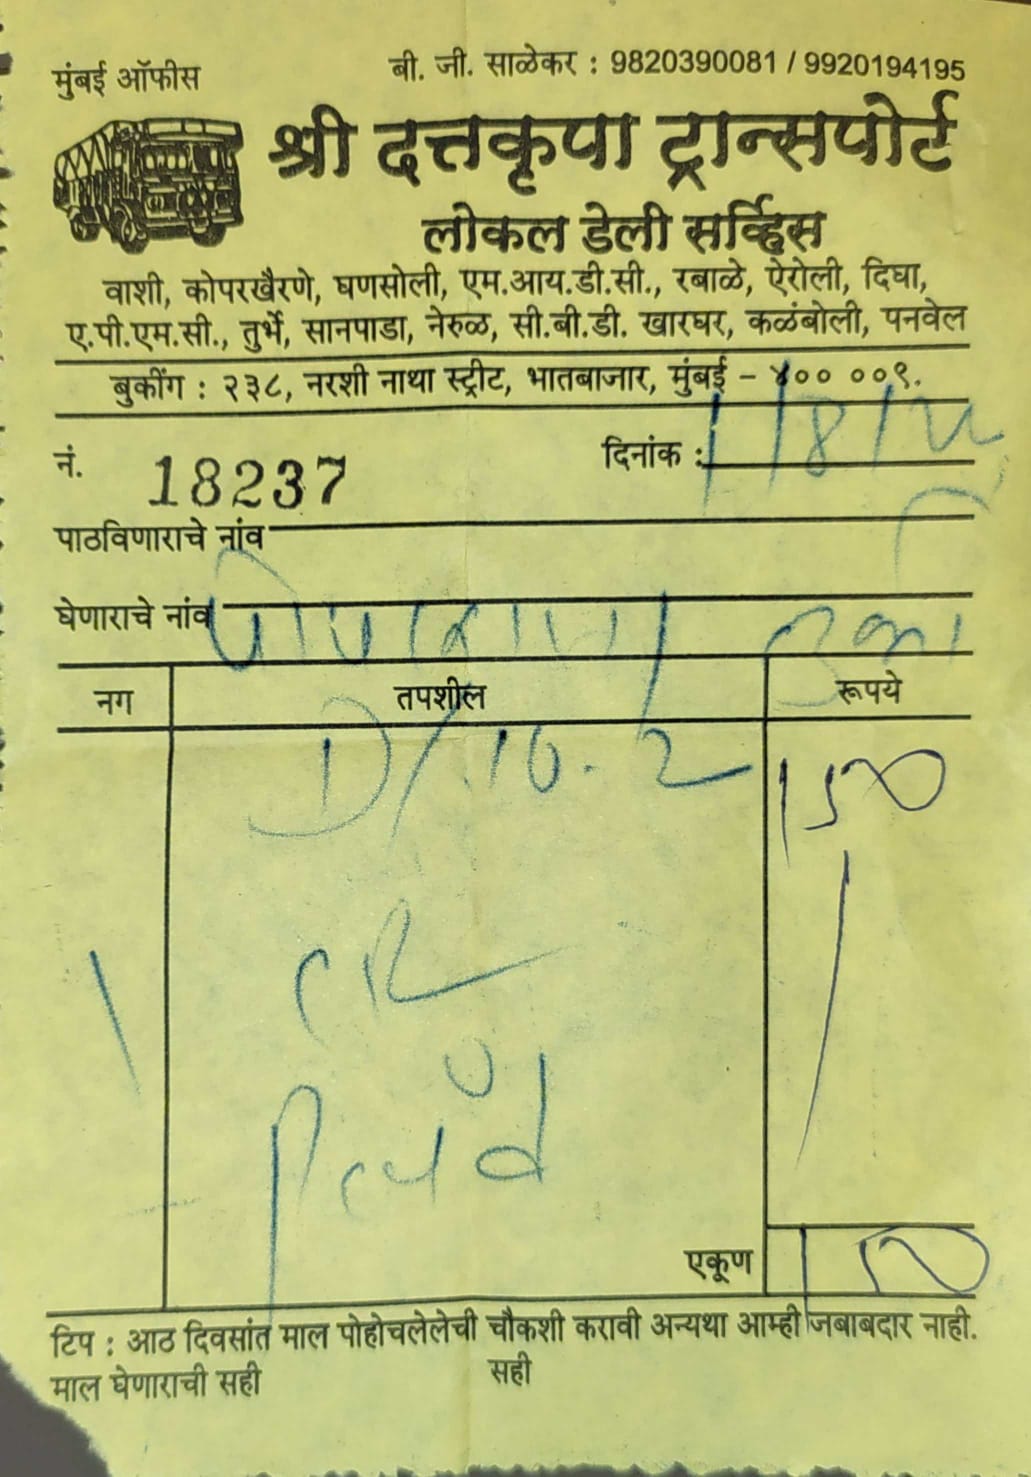 मुंबई ऑफीस
बी. जी. साळेकर : 9820390081 / 9920194195
श्री दत्तकृपा ट्रान्सपोर्ट
लोकल डेली सर्व्हिस
वाशी, कोपरखैरणे, घणसोली, एम.आय.डी.सी., रबाळे, ऐरोली, दिघा,
ए.पी.एम.सी., तुर्भे, सानपाडा, नेरुळ, सी.बी.डी. खारघर, कळंबोली, पनवेल
बुकींग : २३८, नरशी नाथा स्ट्रीट, भातबाजार, मुंबई – ४०० ००९.
नं. 18237
दिनांक : 1/8/
पाठविणाराचे नांव
घेणाराचे नांव
नग तपशील रूपये
150
एकूण 150
टिप : आठ दिवसांत माल पोहोचलेलेची चौकशी करावी अन्यथा आम्ही जबाबदार नाही.
माल घेणाराची सही सही